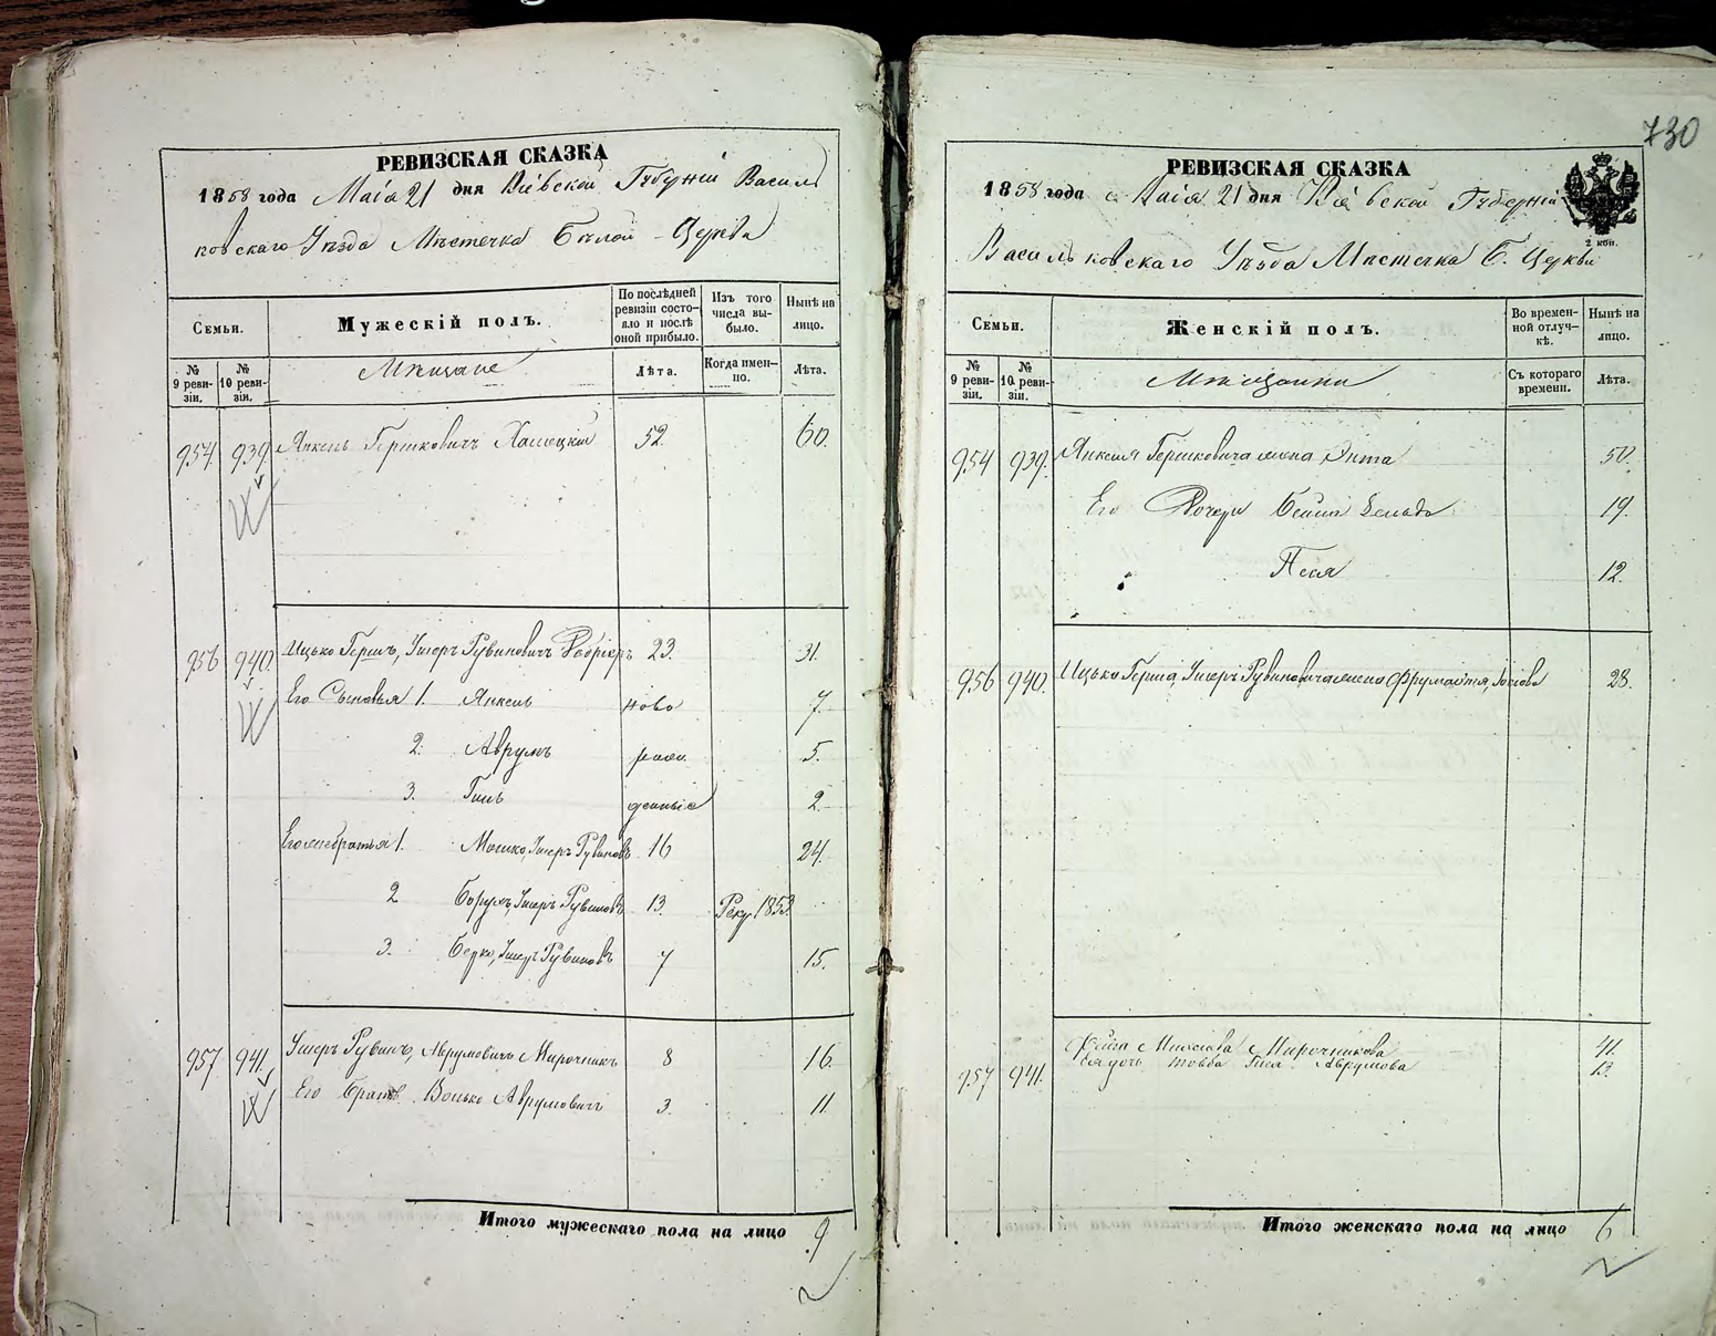 730
РЕВИЗСКАЯ СКАЗКА
1858 года Маія 21 дня Кіевской Губерніи Василь
ковскаго Уѣзда Мѣстечка Бѣлой-Церкви
Семьи.
Мужескій полъ.
По послѣдней ревизіи состо-
яло и послѣ оной прибыло.
Изъ того числа вы-
было.
Нынѣ на лицо.
№ 9 реви-
зіи.
№ 10 реви-
зіи.
Мѣщане
Лѣта.
Когда имен-
но.
Лѣта.
954. 939. Янкель Гершковичъ 52. 60.
956 940. Ицько Гершъ, Ушеръ Рувиновичъ 23. 31.
Его Сыновья 1. Янкель ново 7.
2. Аврумъ рож 5.
3. Гиль денные 2.
Его же братья 1. Мошко, Ушеръ Рувиновъ 16 24.
2 Борухъ, Ушеръ Рувиновъ 13. Рекр. 1853.
3. Берко, Ушеръ Рувиновъ 7 15.
957 941. Ушеръ Рувинъ, Аврумовичъ Мирочникъ 8 16.
Его Братъ Волько Аврумовичъ 3. 11.
Итого мужескаго пола на лицо 9
РЕВИЗСКАЯ СКАЗКА
1858 года Маія 21 дня Кіевской Губерніи
2 коп.
Васильковскаго Уѣзда Мѣстечка Б. Церкви
Семьи.
Женскій полъ.
Во времен-
ной отлуч-
кѣ.
Нынѣ на лицо.
№ 9 реви-
зіи.
№ 10. реви-
зіи.
Мѣщанки
Съ котораго времени.
Лѣта.
954 939. Янкеля Гершковича жена Энта 50.
Его Дочери Бейла 19.
Песя 12.
956 940. Ицька Герша, Ушеръ Рувиновича жена 28.
Мирочникова 41.
957 941. Ея дочь Товба Аврумова 13.
Итого женскаго пола на лицо 6